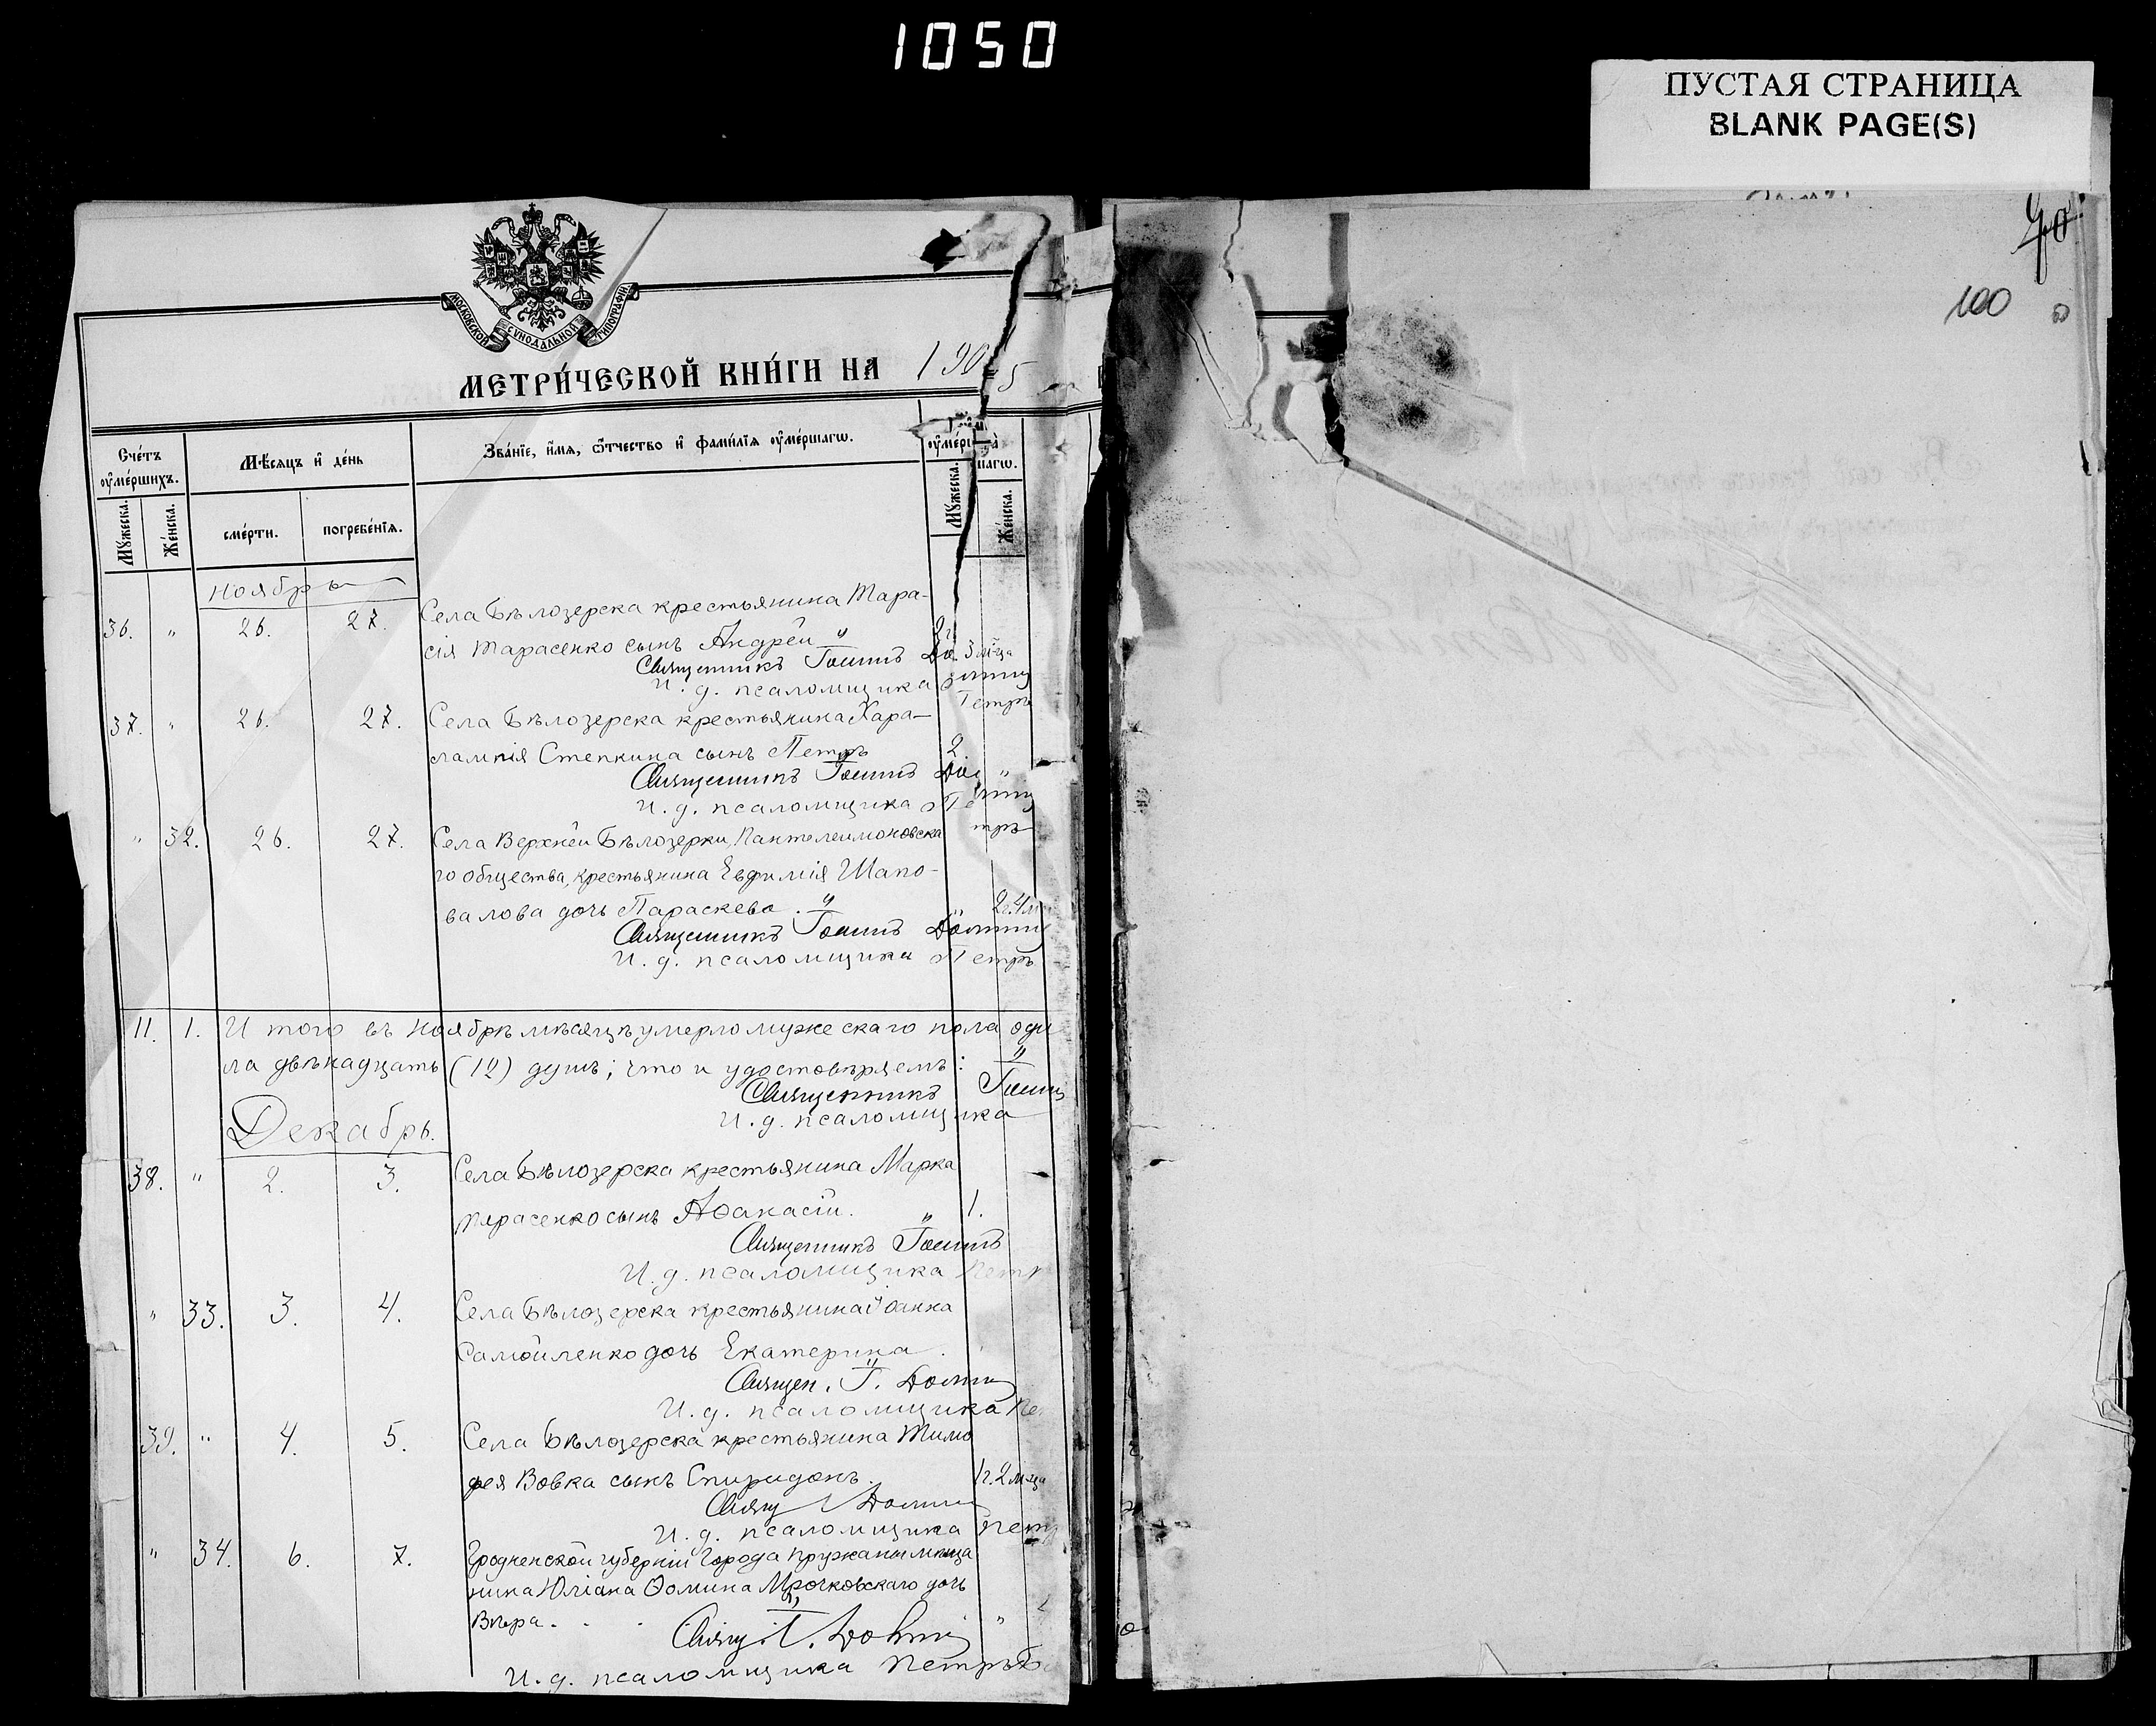 1050
ПУСТАЯ СТРАНИЦА
BLANK PAGE(S)
100
МОСКОВСКОЙ СѴНОДАЛЬНОЙ ТИПОГРАФІИ
МЕТРИ́ЧЕСКОЙ КНИ́ГИ НА 1905
Сче́тъ ᲂу҆ме́ршихъ.
Мѣ́сяцъ и҆ де́нь
Зва́нїе, и҆́мя, ѻ҆́тчество и҆ фами́лїя ᲂу҆ме́ршагѡ.
Мꙋ́жеска.
Же́нска.
сме́рти.
погребе́нїя.
Мꙋ́жеска.
Же́нска.
Ноябрь
36. " 26. 27. Села Бѣлозерска крестьянина Тара-
сія Тарасенко сынъ Андрей 3 м-ца
Священникъ Іоаннъ
И. д. псаломщика Петръ
37. " 26. 27. Села Бѣлозерска крестьянина Хара-
лампія Степкина сынъ Петръ 2. "
Священникъ Іоаннъ
И. д. псаломщика Петръ
" 32. 26. 27. Села Верхней Бѣлозерки, Пантелеимоновска
го общества, крестьянина Евфимія Шапо-
валова дочь Параскева. 2 г. 4 м
Священникъ Іоаннъ
И. д. псаломщика Петръ
11. 1. И того въ Ноябрѣ мѣсяцѣ умерло мужескаго пола оди
ла двѣнадцать (12) душъ; что и удостовѣряемъ:
Священникъ Іоанн
И. д. псаломщика
Декабрь.
38. " 2. 3. Села Бѣлозерска крестьянина Марка
Тарасенко сынъ Аѳанасій. 1.
Священникъ Іоаннъ
И. д. псаломщика Петр
" 33. 3. 4. Села Бѣлозерска крестьянина Іоанна
Самойленко дочь Екатерина.
Священ. І.
И. д. псаломщика Пе
39. " 4. 5. Села Бѣлозерска крестьянина Тимо
фея Вовка сынъ Спиридонъ. 1 г. 2 м-ца
Свящ
И. д. псаломщика Петр
" 34. 6. 7. Гродненской губерніи Города Пружаны мѣща
нина Юліана Ѳомина Мрочковскаго дочь
Вѣра. "
Свящ. І.
И. д. псаломщика Петръ